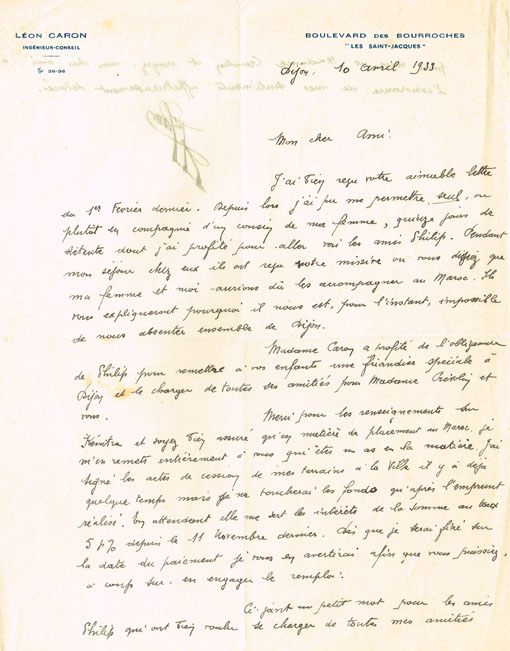 LÉON CARON
INGÉNIEUR-CONSEIL
26-36
BOULEVARD DES BOURROCHES
"LES SAINT-JACQUES"
Dijon, 10 avril 1933
Mon cher Ami:
J'ai bien reçu votre aimable lettre
du 1er Février dernier. Depuis lors j'ai pu me permettre, seul, ou
plutôt en compagnie d'un cousin de ma femme, quinze jours de
détente dont j'ai profité pour aller voir les amis Philip. Pendant
mon séjour chez eux ils ont reçu votre missive où vous disiez que
ma femme et moi aurions dû les accompagner au Maroc. Ils
vous expliqueront pourquoi il nous est, pour l'instant, impossible
de nous absenter ensemble de Dijon.
Madame Caron a profité de l'obligeance
de Philip pour remettre à vos enfants une friandise spéciale à
Dijon et le charger de toutes ses amitiés pour Madame et
vous.
Merci pour les renseignements sur
Kénitra et soyez bien assuré qu'en matière de placement au Maroc, je
m'en remets entièrement à vous qui êtes un as en la matière. J'ai
signé les actes de cession de mes terrains à la Ville il y a déjà
quelque temps mais je ne toucherai les fonds qu'après l'emprunt
réalisé. En attendant elle me sert les intérêts de la somme au taux
5 % depuis le 11 Novembre dernier. Dès que je serai fixé sur
la date du paiement je vous en avertirai afin que vous puissiez,
à coup sûr, en engager le remploi.
Ci-joint un petit mot pour les amis
Philip qui ont bien voulu se charger de toutes mes amitiés